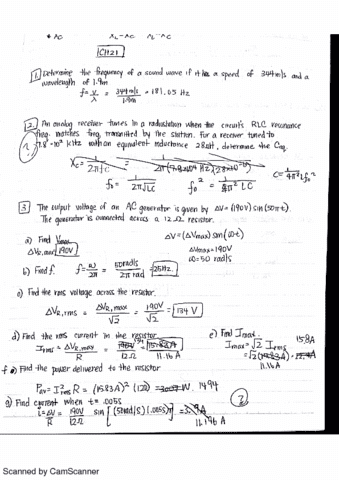 * AC XL - AC AL - AC
CH21
1. Determine the frequency of a sound wave if it has a speed of 344 m/s and a
wavelength of 1.9m
f = v/λ = 344 m/s / 1.9m = 181.05 Hz
2. An analog receiver tunes in a radiostation when the circuit's RLC resonance
freq. matches freq. transmitted by the station. For a receiver tuned to
kHz with an equivalent inductance determine the Ceq.
Xc = 1/2πfC
f₀ = 1/2π√LC f₀² = 1/4π² LC C = 1/4π² L f₀²
3. The output voltage of an AC generator is given by ΔV = (190V) sin(50πt).
The generator is connected across a 12Ω resistor.
ΔV = (ΔVmax) sin(ωt)
a) Find Vmax
ΔVR,max 190V
ΔVmax = 190V
ω = 50 rad/s
b) Find f. f = ω/2π = 50 rad/s / 2π rad = 25Hz.
c) Find the rms voltage across the resistor.
ΔVR,rms = ΔVR,max/√2 = 190V/√2 = 134 V
d) Find the rms current in the resistor
Irms = ΔVR,max/R = 12Ω
11.16 A
e) Find Imax.
15.8A
Imax = √2 Irms
11.16A
f) Find the power delivered to the resistor
Pav = I²rms R = (15.83A)² (12Ω) = W. 1494
g) Find current when t = .005s
i = ΔV/R = 190V/12Ω sin[(50rad/s)(.005s)π] =
11.196 A
2
Scanned by CamScanner